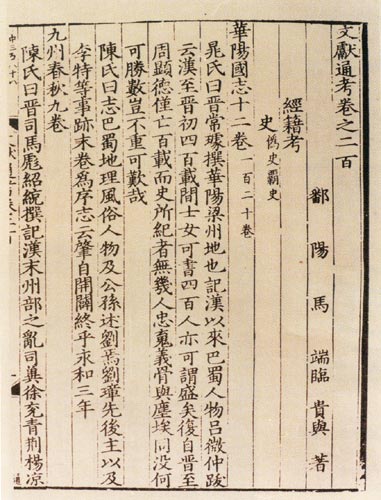 文獻通考卷之二百
鄱陽馬端臨貴與著
經籍考
史僞史霸史
華陽國志十二卷一百二十卷
晁氏曰晉常璩撰華陽梁州地也記漢以來巴蜀人物呂微仲跋
云漢至晉初四百載間士女可書四百人亦可謂盛矣復自晉至
周顯德僅七百載而史所紀者無幾人忠䰟義骨與塵埃同没何
可勝數豈不重可歎哉
陳氏曰志巴蜀地理風俗人物及公孫述劉焉劉璋先後主以及
李特等事跡末卷爲序志云肇自開闢終乎永和三年
九州春秋九卷
陳氏曰晉司馬彪紹統撰記漢末州部之亂司冀徐兖青荆楊凉